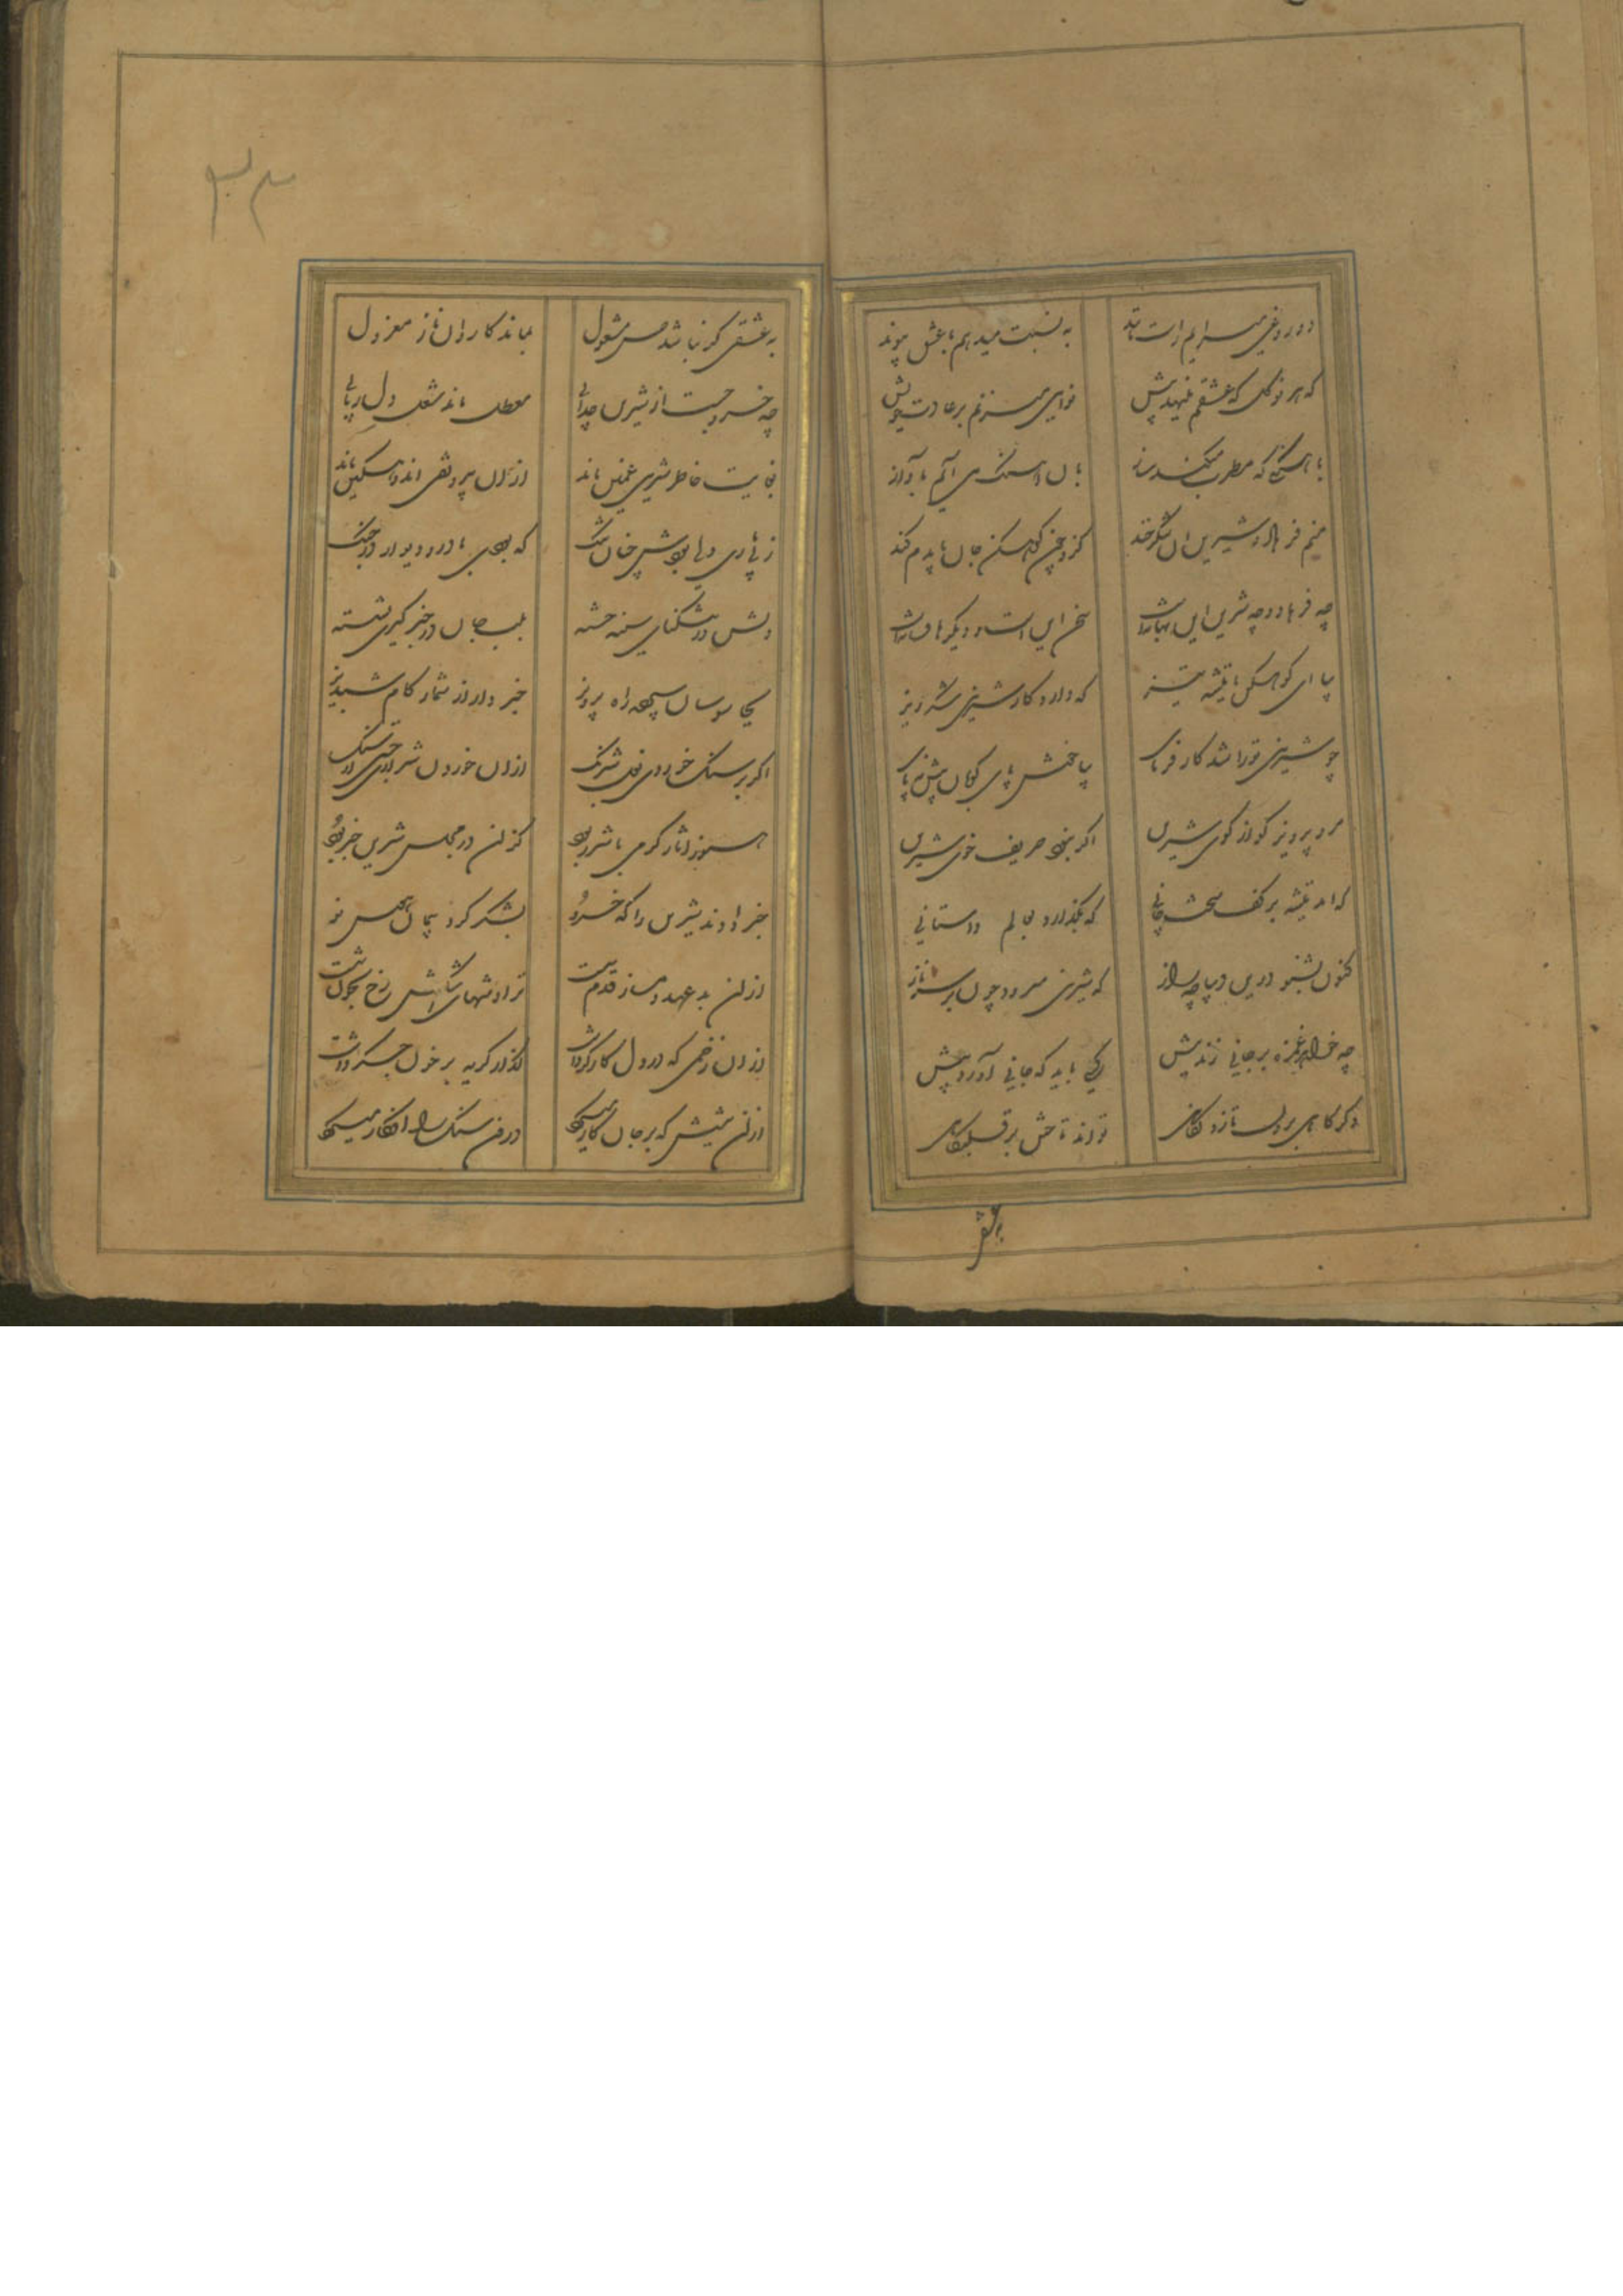 دروغی میسرایم راست مانند به نسبت میدهم با عشق پیوند
که هر نوگل که عشقم مینهد پیش نوایی میزنم بر عادت خویش
با آهنگی که مطرب میکند ساز بدان آهنگ می آیم بآواز
منم فرهاد و شیرین آن شکرخند کزو چون کوهکن جان بایدم کند
چه فرهاد و چه شیرین این بهانه است سخن این است و دیگرها فسانه است
بیا ای کوهکن با تیشه تیز که دارد کار شیرین شکرریز
چو شیرینی ترا شد کارفرمای بیا خوش پای کوبان پیش نه پای
برو پرویز گو از کوی شیرین اگر نبود حریف خوی شیرین
که آمد تیشه بر کف سخت جانی که بگذارد بعالم داستانی
کنون بشنو درین دیباچه راز که شیرین میرود چون بر سر ناز
چه خواهد غمزه بر جانی زند نیش یکی باید که جانی آورد پیش
وگر گاهی برون تازد نگاهی تواند تاختن بر قلبگاهی
بعشق
به عشقی گر نباشد حسن مشغول بماند کاروان ناز معزول
چه خسرو جست از شیرین جدایی معطل ماند شغل دلربایی
بغایت خاطر شیرین غمین ماند ازان بی رونقی اندوهگین ماند
ز بی یاری دلی بودش چنان تنگ که بودی با در و دیوار در جنگ
دلش در تنگنای سینه خسته بلب جان در خبرگیری نشسته
بجاسوسان سپرده راه پرویز خبر دار از شمار گام شبدیز
اگر بر سنگ خوردی نعل شبرنگ ازان خوردن شراری جستی از سنگ
هنوز آثار گرمی با شرر بود کزان در مجلس شیرین خبر بود
خبر دادند شیرین را که خسرو بشکر کرد پیمان هوس نو
ازان بد عهد دمساز قدم سست تراوشهای اشکش رخ بخون شست
ازان زخمی که در دل کارگر داشت گذار گریه بر خون جگر داشت
ازان نیشش که بر جان کار میکرد درون سنگ را افکار میکرد